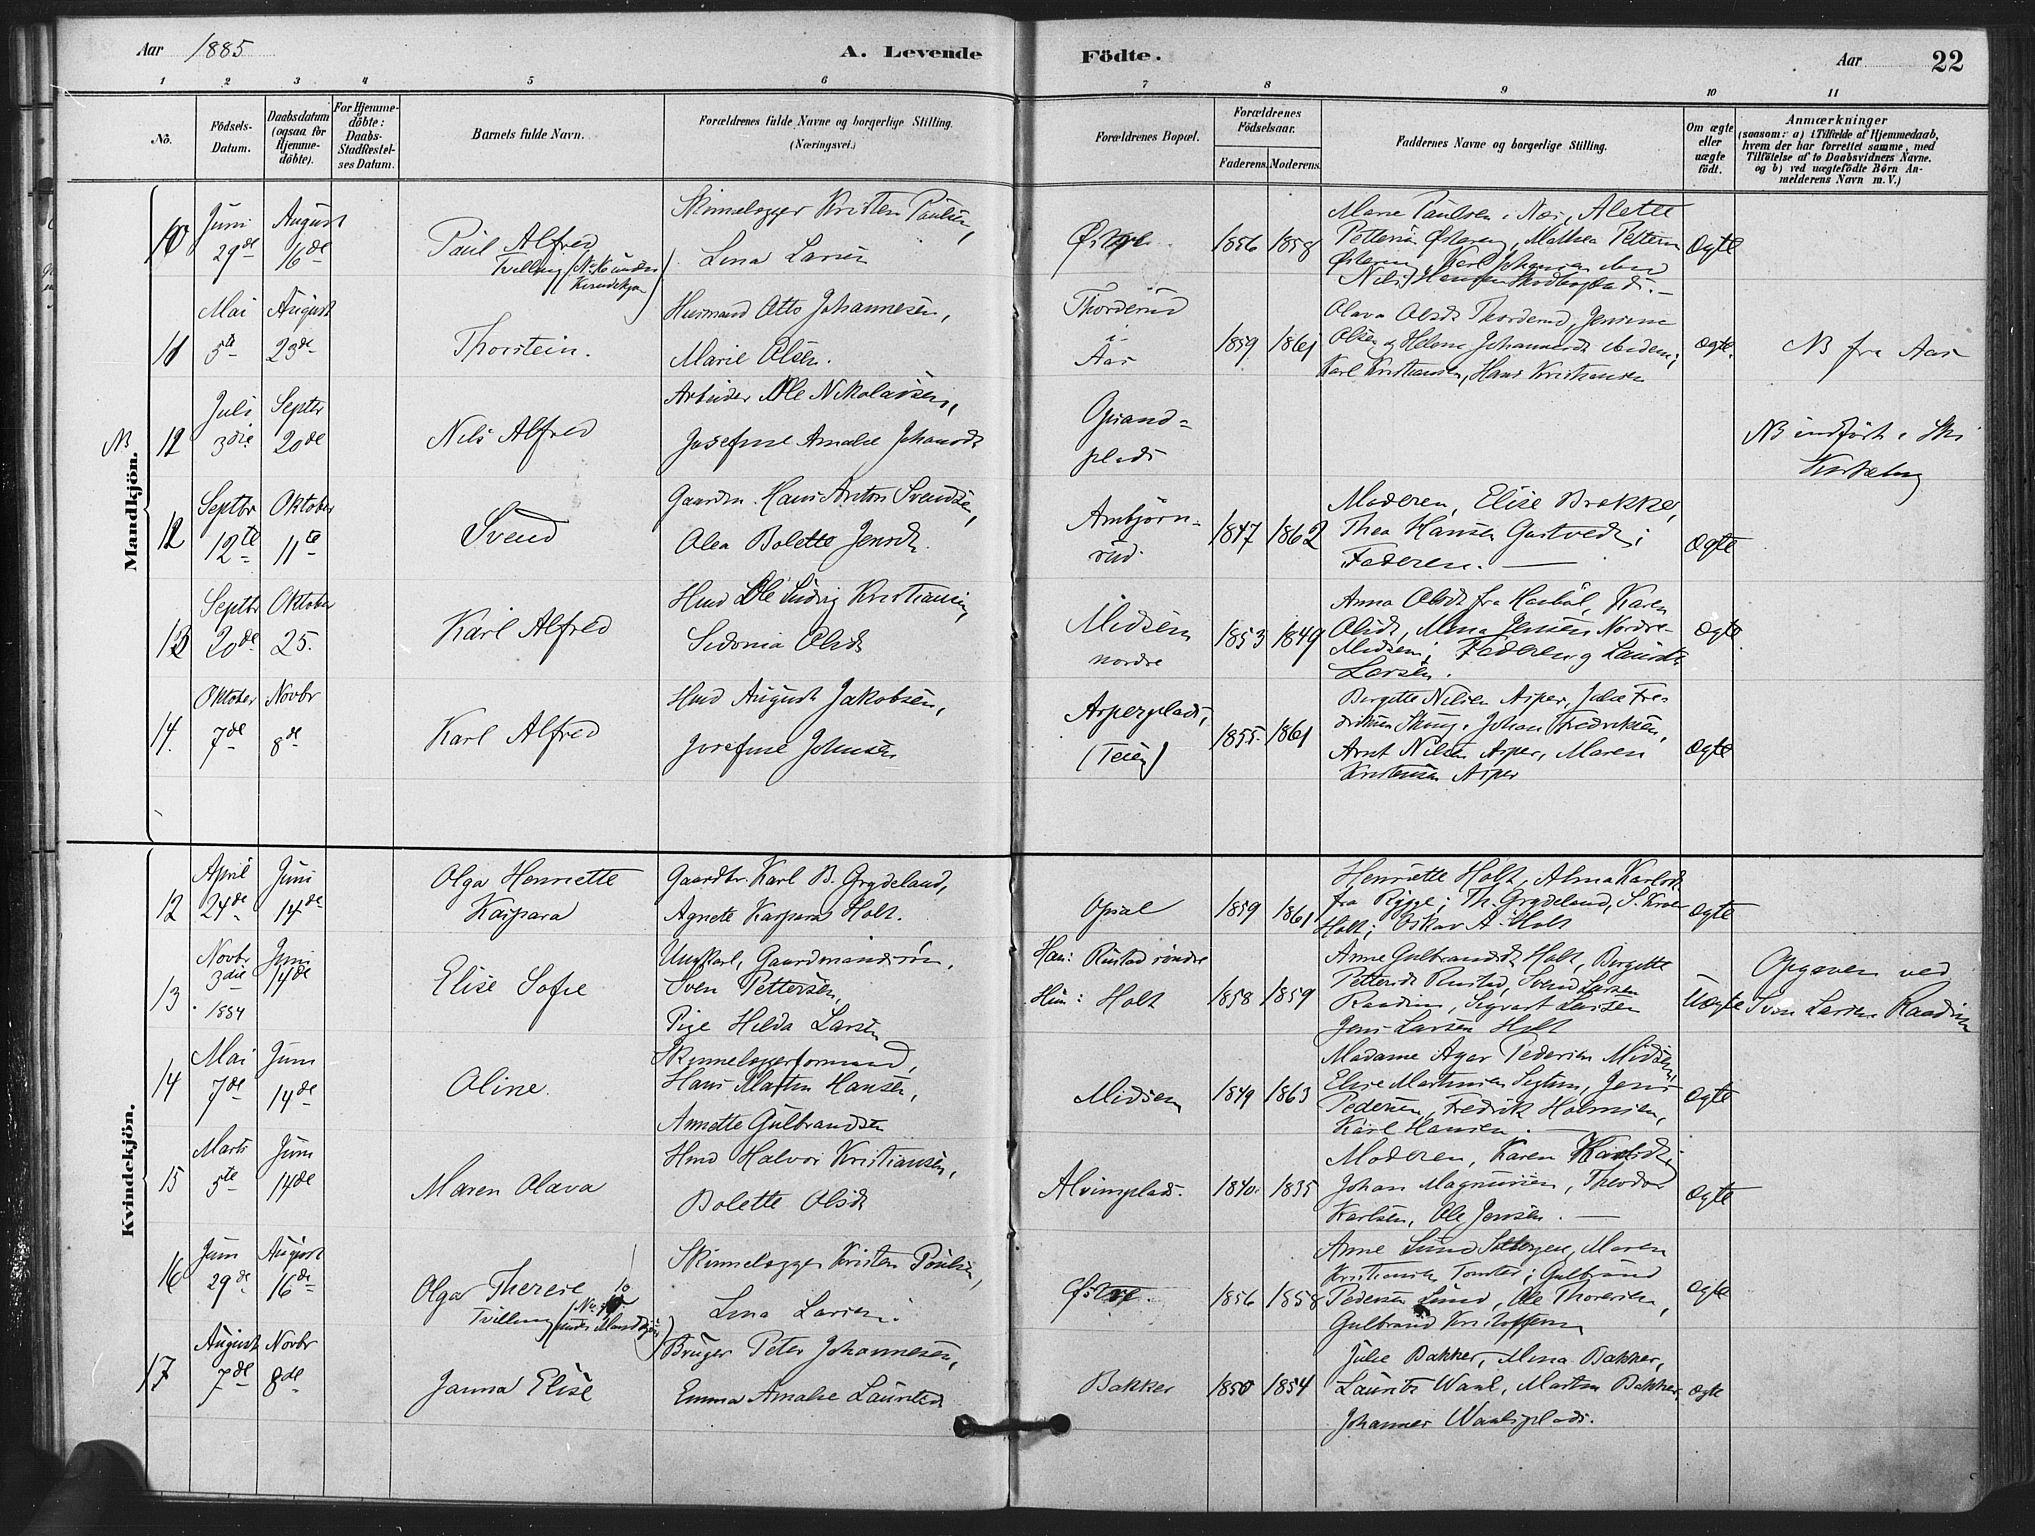 Aar 1885
A. Levende
Födte.
Aar
22
1 2 3 4 5 6 7 8 9 10 11
No.
Födsels-
Datum.
Daabsdatum
(ogsaa for
Hjemme-
döbte).
For Hjemme-
döbte:
Daabs-
Stadfæstel-
ses Datum.
Barnets fulde Navn.
Forældrenes fulde Navne og borgerlige Stilling.
(Næringsvei.)
Forældrenes Bopæl.
Forældrenes
Födselsaar.
Faderens. Moderens.
Faddernes Navne og borgerlige Stilling.
Om ægte
eller
uægte
födt.
Anmærkninger
(saasom: a) i Tilfælde af Hjemmedaab,
hvem der har forrettet samme, med
Tilföielse af to Daabsvidners Navne.
og b) ved uægtefödte Børn An-
melderens Navn m. V.)
Mandkjön.
10
Juni
29de
August
16de
Paul Alfred
Tvilling
Kvindekjøn
Skinnelægger Kristen Paulsen,
Lina Larsen
1856 1858
Marie Paulsen i Næs, Alette
Pettersen Østereng, Mathea Pettersen
Karl Johansen
Nils Hansen
Ægte
11
Mai
5te
August
23de
Thorstein.
Husmand Otto Johannesen,
Marie Olsen.
Thorderud
i
Aas
1859 1861
Olava Olsdt Thorderud, Jensine
Olsen og Helene Johannesdt
Karl Kristiansen, Hans Kristiansen
Ægte.
NB fra Aas
NB
12
Juli
3die
Septbr
20de
Nils Alfred
Arbeider Ole Nikolaisen,
Josefine Amalie Johansdt
Grand-
plads
NB indført i Ski
Kirkebog
12
Septbr
12te
Oktober
11te
Svend
Gaardm. Hans Anton Svendsen,
Olea Bolette Jensdt.
Arnbjørn-
rud
1847 1862
Moderen, Elise Brekke,
Thea Hansen Gastvedt;
Faderen.
Ægte
13
Septbr
20de
Oktober
25.
Karl Alfred
Hmd Ole Ludvig Kristiansen,
Sidonia Olsdt
Midsem
nordre
1853 1849
Anna Olsdt fra Haabøl, Karen
Olsdt, Mina Jensen Nordre-
Midsem; Faderen og Laurits
Larsen.
Ægte
14.
Oktober
7de
Novbr
8de
Karl Alfred
Hmd August Jakobsen,
Josefine Johnsen
Asperplads,
(Teien)
1855 1861
Birgitte Nilsen Asper, Julie Fre-
driksen Johan Fredriksen,
Arnt Nilsen Asper, Maren
Kristensen Asper
Ægte
Kvindekjön.
12
April
24de
Juni
14de
Olga Henriette
Kaspara
Gaardbr. Karl B. Grydeland,
Agnete Kaspara Holt.
Opsal
1859 1861
Henriette Holt, Alma Karlsdt
fra Rygge; Th. Grydeland, S.
Holt; Oskar A. Holt
Ægte
13
Novbr
3die
1884
Juni
14de
Elise Sofie
Ungkarl, Gaardmandssøn,
Sven Pettersen,
Pige Hilda Larsen
Han: Rustad søndre
Hun: Holt
1858 1859
Anne Gulbrandsdt Holt, Birgitte
Pettersdt Rustad, Svend Larsen
Raadim, Sigvart Larsen
Jens Larsen Holt
Uægte
Opgaven ved
Sven Larsen Raadim
14
Mai
7de
Juni
14de
Oline.
Skinnelæggerformand,
Hans Martin Hansen,
Annette Gulbrandsen
Midsem
1849 1863
Madame Agar Pedersen Midsem,
Elise Martinsen Jens
Pedersen, Fredrik Holmsen,
Karl Hansen.
Ægte
15
Marts
5te
Juni
14de
Maren Olava
Hmd Halvor Kristiansen,
Bolette Olsdt
Alvimplads.
1840. 1835
Moderen, Karen Karlsdt;
Johan Magnussen, Theodor
Karlsen, Ole Jensen.
Ægte
16
Juni
29de
August
16de
Olga Therese
Tvilling
(No 10
under Mandkjøn)
Skinnelægger Kristen Paulsen,
Lina Larsen.
1856 1858
Anne Lund Maren
Kristiansen Tomter; Gulbrand
Pedersen Lund, Ole Thoresen,
Gulbrand Kristoffersen
Ægte
17
August
7de
Novbr
8de
Janna Elise
Bruger Peter Johannesen,
Emma Amalie Lauritsdt
Bakker
1850 1854
Julie Bakker, Mina Bakker,
Laurits Waal, Martin Bakker,
Johannes Waalsplads.
Ægte